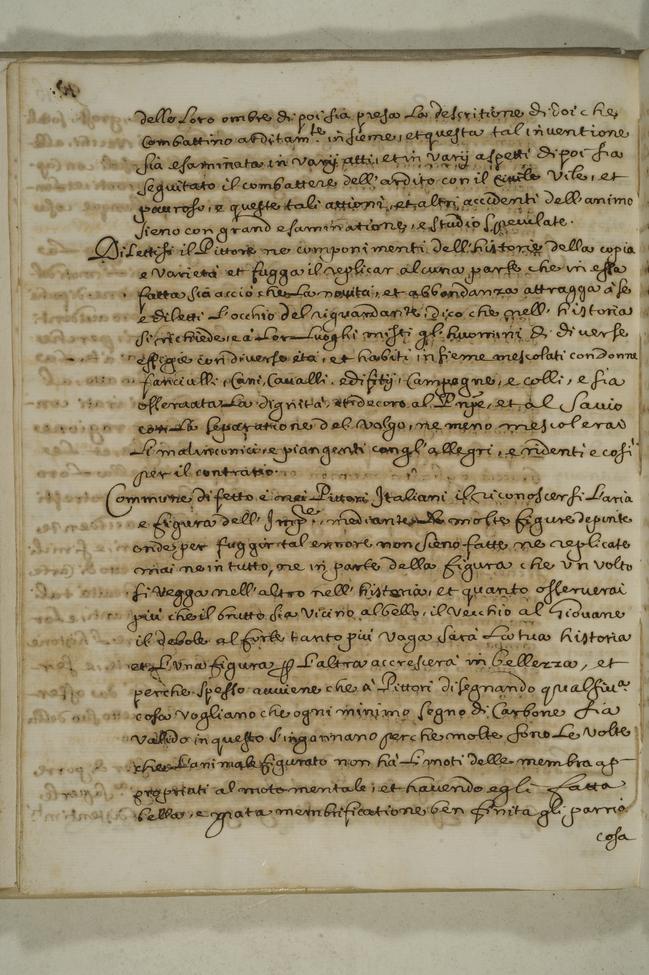 delle Loro ombre di poi sia presa La descritione di doi che
Combattino arditam.te insieme, et questa tal inventione
sia esaminata in varij atti, et in varij aspetti di poi sia
seguitato il combattere dell'ardito con il Vile, et
pauroso, e queste tali attioni, et altri accidenti dell'animo
sieno con grand'esaminatione, e studio speculate.
Dilettisi il Pittore ne componimenti dell'historie della copia
e varietà et fugga il replicar alcuna parte che in essa
fatta sia acciò che La novità, et abbondanza attragga à se
e diletti L'occhio del riguardante, dico che nell'historia
si richiede, e à Lor Luoghi misti gl'huomini di diverse
effigie con diverse età, et habiti insieme mescolati con donne
fanciulli, Cani, Cavalli, edifitij, Campagne, e colli, e sia
osservata La dignità, et decoro al Prñpe, et al Savio
con La separatione del Volgo, ne meno mescolerai
Li malinconici, e piangenti con gl'allegri, e ridenti e così
per il contratio.
Commune difetto è nei Pittori Italiani il riconoscersi L'aria
e figura dell'Imp.re, mediante molte figure depinte
onde per fuggir tal errore non sieno fatte ne replicate
mai ne in tutto, ne in parte della figura che un volto
si vegga nell'altro nell'historia, et quanto osserverai
più che il brutto sia vicino al bello, il vecchio al Giovane
il debole al forte tanto più vaga sarà La tua historia
et L'una figura p L'altra accrescerà in bellezza, et
perche spesso avviene che à Pittori disegnando qualsiv.a
cosa vogliano che ogni minimo segno di Carbone sia
valido in questo s'ingannano perche molte sono Le volte
che L'animale figurato non hà Li moti delle membra ap=
propriati al moto mentale, et havendo egli fatta
bella, e grata membrificatione ben finita gli parrà
cosa